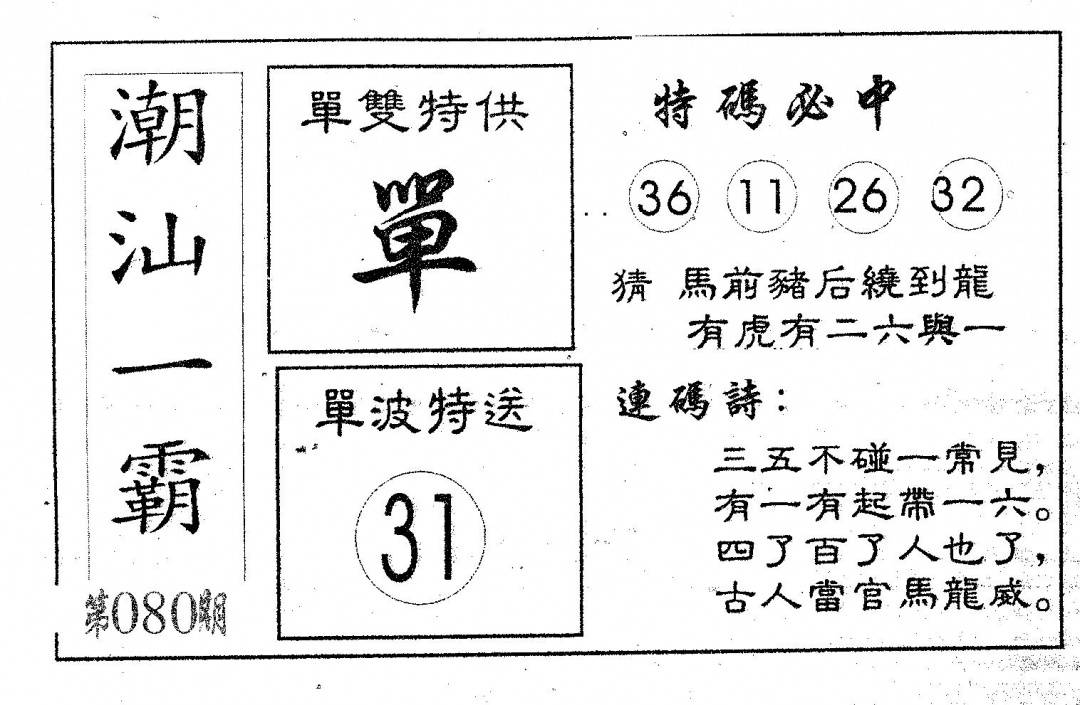 潮汕一霸
第080期
單雙特供
單
單波特送
31
特碼必中
36 11 26 32
猜 馬前豬后繞到龍
有虎有二六與一
連碼詩：
三五不碰一常見，
有一有起帶一六。
四了百了人也了，
古人當官馬龍威。